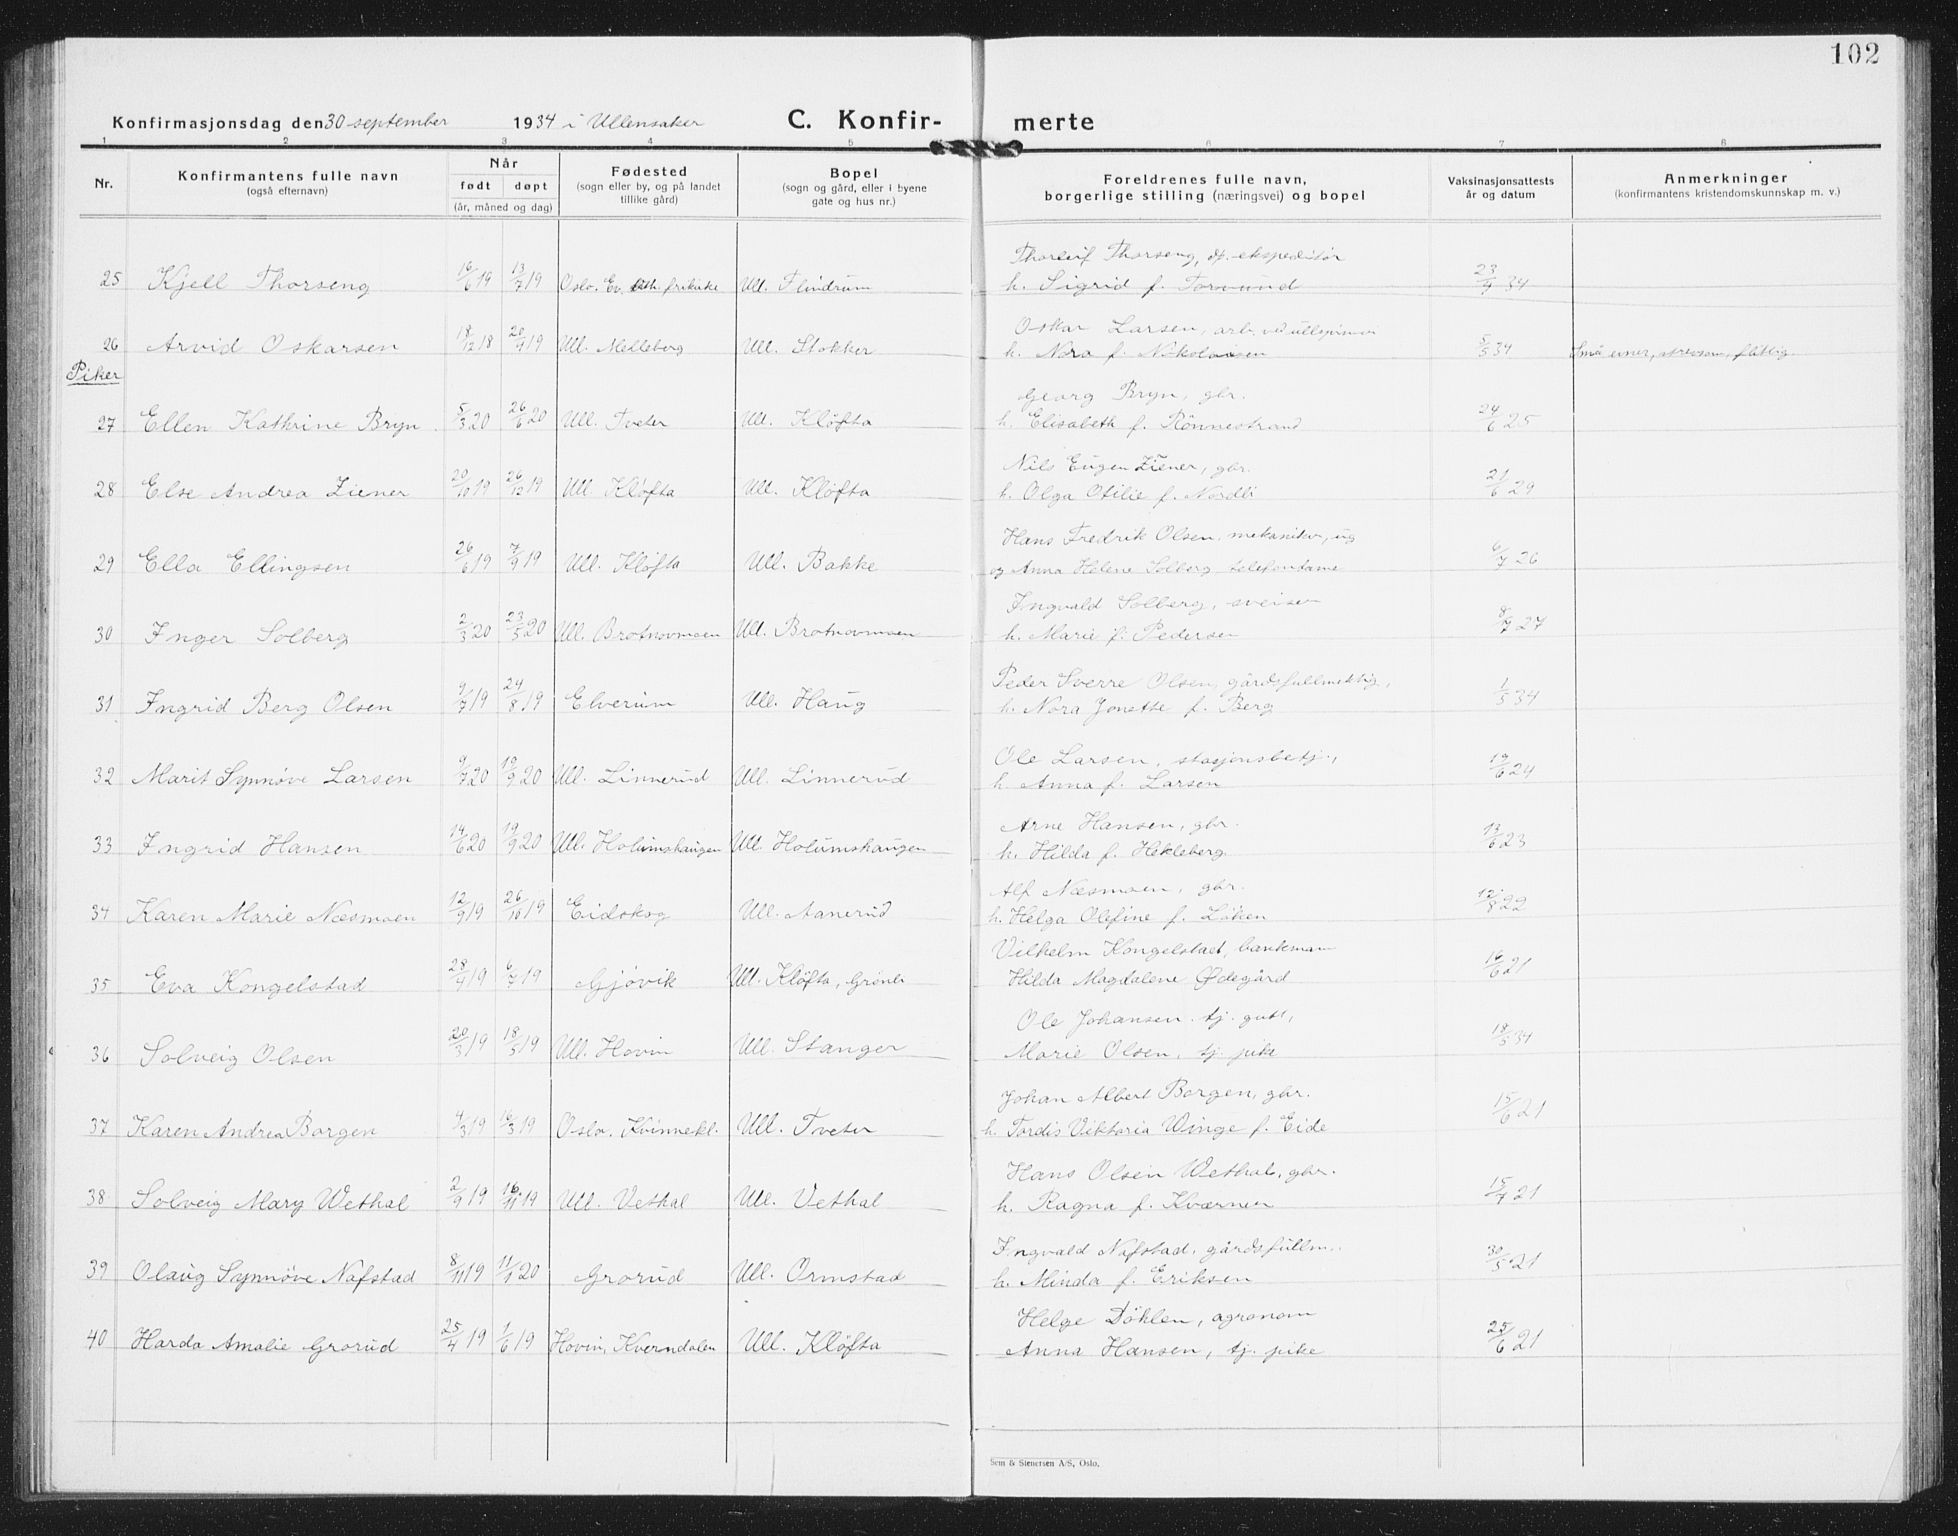 102
Konfirmasjonsdag den 30 september 1934 i Ullensaker C. Konfir- merte
1 2 3 4 5 6 7 8
Nr. Konfirmantens fulle navn (også efternavn) Når født døpt (år, måned og dag) Fødested (sogn eller by, og på landet tillike gård) Bopel (sogn og gård, eller i byene gate og hus nr.) Foreldrenes fulle navn, borgerlige stilling (næringsvei) og bopel Vaksinasjonsattests år og datum Anmerkninger (konfirmantens kristendomskunnskap m. v.)
Thorleif Thorseng, dp. ekspeditør
25 Kjell Thorseng 16/6 19 13/7 19 Oslo. Ev. luth. frikirke Ull. Flindrum h. Sigrid f. Torvund 23/9 34
Oskar Larsen, arb. ved ullspinneri
26 Arvid Oskarsen 18/12 18 20/9 19 Ull. Melleberg Ull. Stokker h. Nora f. Nikolaisen 5/5 34 Små evner, strevsom, flittig.
Piker
Georg Bryn, gbr.
27 Ellen Kathrine Bryn 5/3 20 26/6 20 Ull. Tveter Ull. Kløfta h. Elisabeth f. Rönnestrand 24/6 25
Nils Eugen Ziener, gbr.
28 Else Andrea Ziener 20/10 19 26/12 19 Ull Kløfta Ull. Kløfta h. Olga Otilie f. Nordli 21/6 29
Hans Fredrik Olsen, mekaniker, ug
29 Ella Ellingsen 26/6 19 7/9 19 Ull. Kløfta Ull. Bakke og Anna Helene Solberg, telefondame 6/7 26
Ingvald Solberg, sveiser
30 Inger Solberg 2/3 20 23/5 20 Ull. Brotnovmoen Ull. Brotnovmoen h. Marie f. Pedersen 8/7 27
Peder Sverre Olsen, gårdsfullmektig,
31 Ingrid Berg Olsen 9/7 19 24/8 19 Elverum Ull. Haug h. Nora Jonette f. Berg 1/5 34
Ole Larsen, stasjonsbetj.,
32 Marit Synnøve Larsen 9/7 20 19/9 20 Ull. Linnerud Ull. Linnerud h. Anna f. Larsen 19/6 24
Arne Hansen, gbr.
33 Ingrid Hansen 14/6 20 19/9 20 Ull. Holumshaugen Ull. Holumshaugen h. Hilda f. Hekleberg 13/6 23
Alf Næsmoen, gbr.
34 Karen Marie Næsmoen 12/9 19 26/10 19 Eidskog Ull. Aanerud h. Helga Olefine f. Løken 12/8 22
Vilhelm Kongelstad, bankmann
35 Eva Kongelstad 28/4 19 6/7 19 Gjøvik Ull. Kløfta, Grønli Hilda Magdalene Ødegård 16/6 21
Ole Johansen tj. gutt,
36 Solveig Olsen 20/3 19 18/5 19 Ull. Hovin Ull. Stanger Marie Olsen, tj. pike 18/5 34
Johan Albert Borgen, gbr.
37 Karen Andrea Borgen 4/3 19 16/3 19 Oslo. Kvinnekl. Ull. Tveter h. Tordis Viktoria Winge f. Eide 15/6 21
Hans Olsen Wethal, gbr.
38 Solveig Mary Wethal 2/9 19 16/11 19 Ull. Vethal Ull. Vethal h. Ragna f. Kværner 15/7 21
Ingvald Nafstad, gårdsfullm.
39 Olaug Synnøve Nafstad 8/11 19 11/1 20 Grorud Ull. Ormstad h. Minda f. Eriksen 30/5 21
Helge Døhlen, agronom
40 Harda Amalie Grorud 25/4 19 1/6 19 Hovin, Kverndalen Ull. Kløfta Anna Hansen, tj. pike 25/6 21
Sem & Stenersen A/S, Oslo.